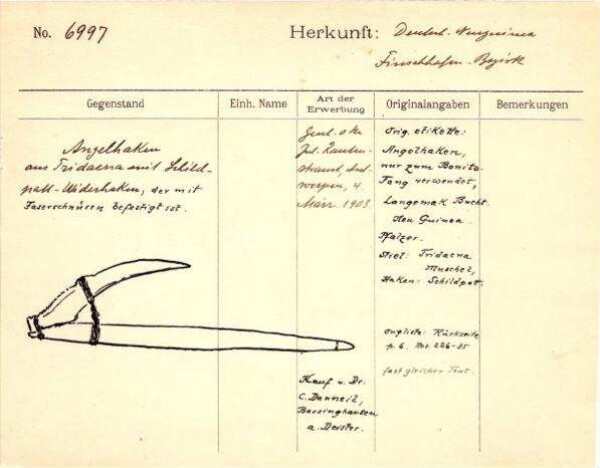 No. 6997
Herkunft: Deutsch. Neuguinea
Finschhafen-Bezirk
Gegenstand
Einh. Name
Art der
Erwerbung
Originalangaben
Bemerkungen
Angelhaken
aus Tridacna mit Schild-
patt-Widerhaken, der mit
Faserschnüren befestigt ist.
Jul. Rauten-
strauch, Ant-
werpen, 4.
März 1903
Kauf v. Dr.
C. Danneil,
Barsinghausen
a. Deister.
Orig. etikette:
Angelhaken,
nur zum Bonito-
Fang verwendet,
Langemak Bucht.
Neu Guinea.
Pfalzer.
Stiel: Tridacna
Muschel,
Haken: Schildpat.
Rückseite
p. 6. No: 226-35
fast gleicher Text.